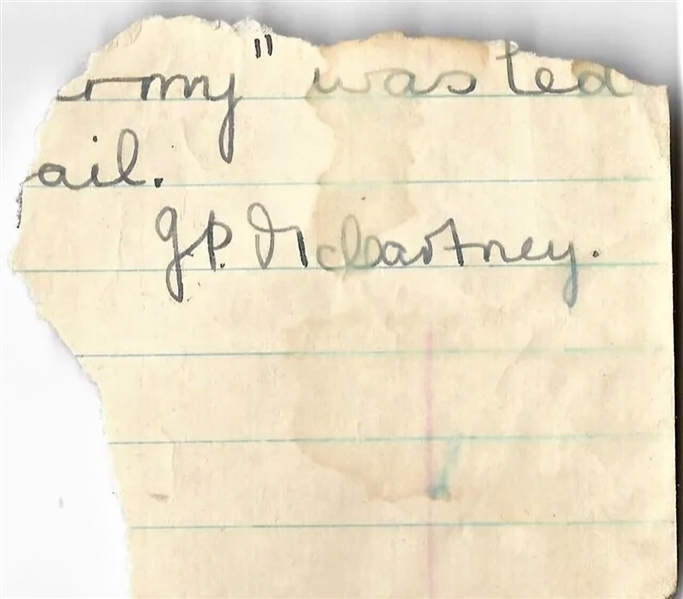 army" was led
ail.
J.P. McCartney.